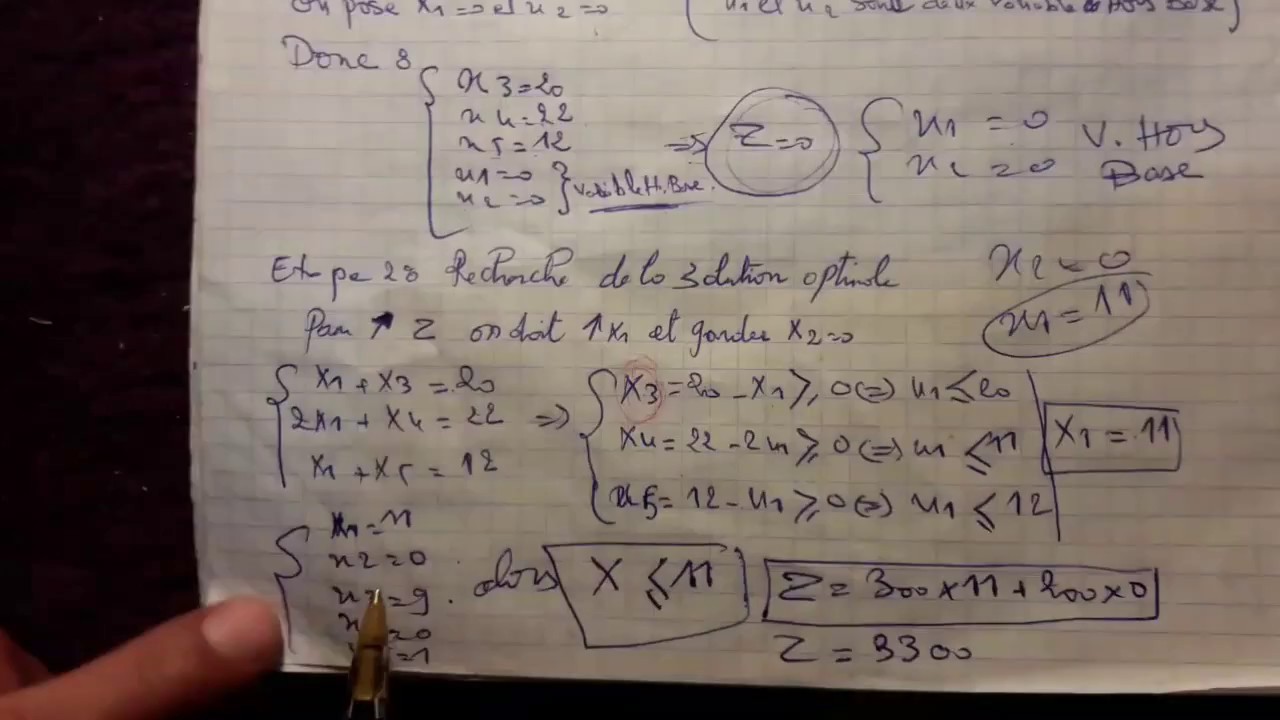 On pose x1=0 et x2=0 (x1 et x2 sont deux variable Hors Base)
Donc :
x3=20
x4=22
x5=12
x1=0
x2=0 } variable H. Base.
=> Z=0
x1=0
x2=0
V. Hors
Base
Etape 2: Recherche de la solution optimale
x2=0
x1=11
Pour ↑ Z on doit ↑ x1 et garder x2=0
x1+x3=20
2x1+x4=22
x1+x5=12
=>
x3=20-x1≥0 <=> x1≤20
x4=22-2x1≥0 <=> x1≤11
x5=12-x1≥0 <=> x1≤12
x1=11
x1=11
x2=0
=9
=0
=1
alors x≤11
Z=300×11+200×0
Z=3300